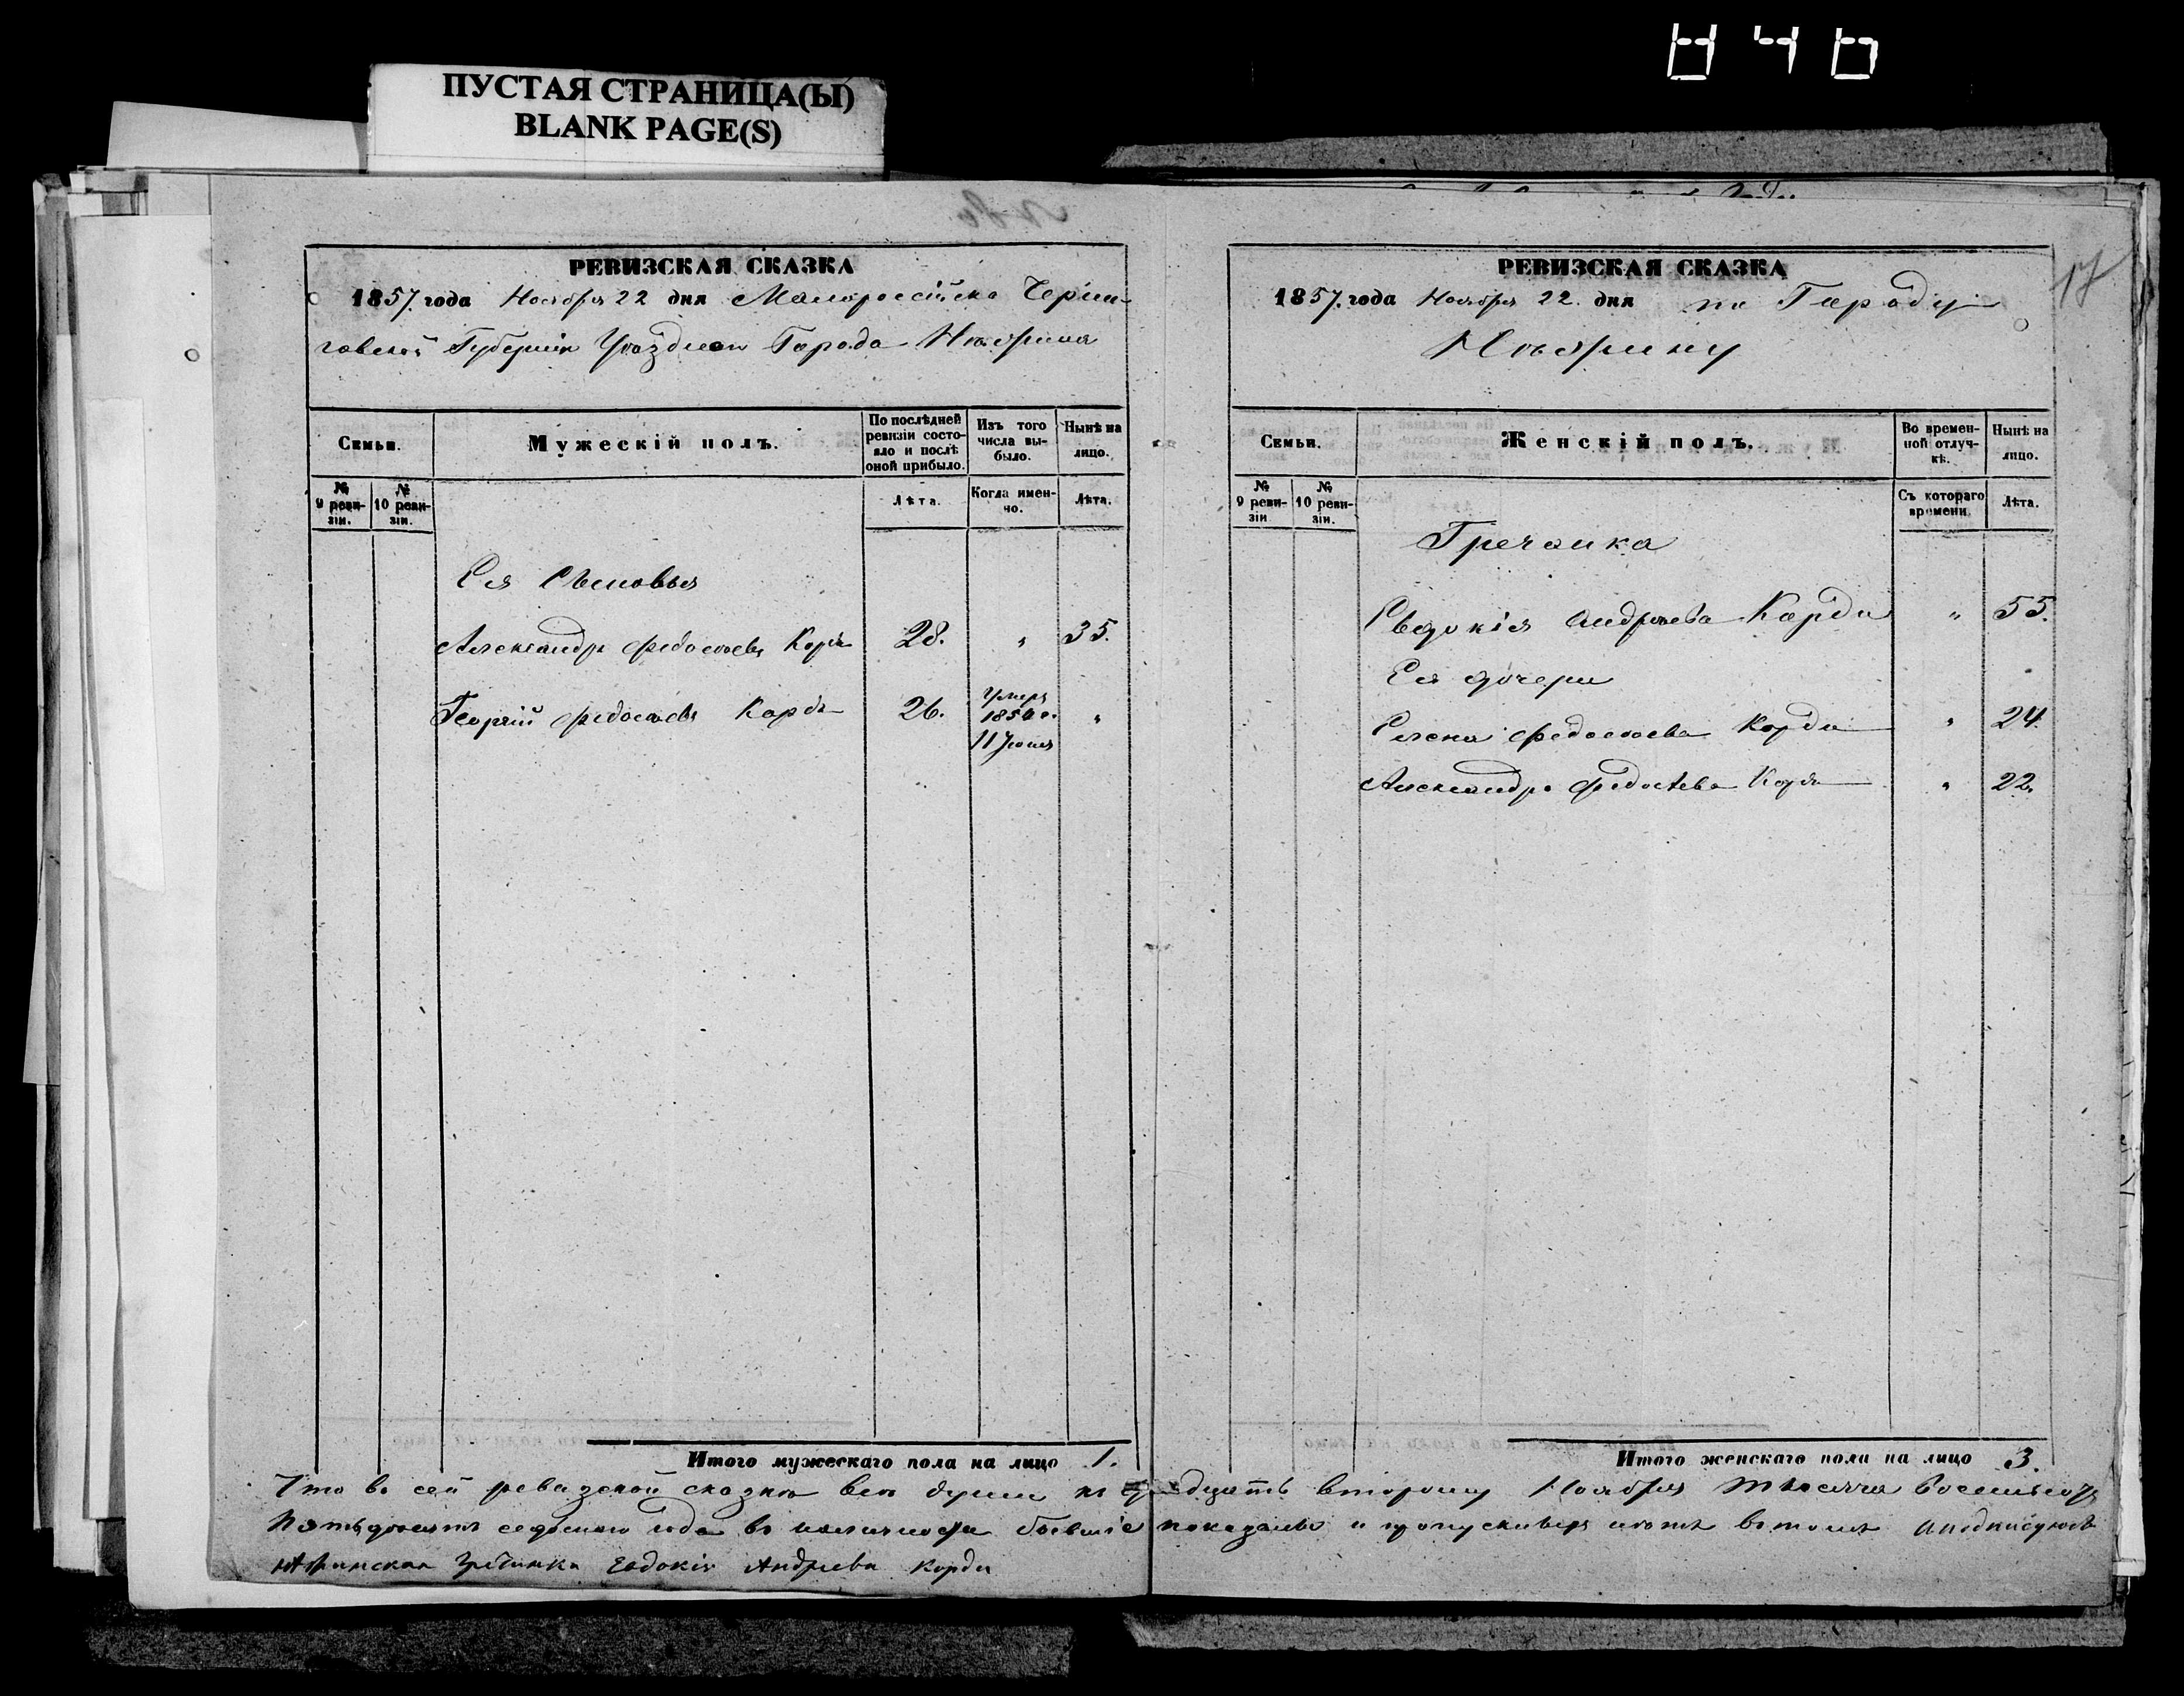 ПУСТАЯ СТРАНИЦА(Ы)
BLANK PAGE(S)
РЕВИЗСКАЯ СКАЗКА
1857. года Ноября 22 дня Малоросійско Черни-
говской Губерніи Уѣзднои Города Нѣжина
Семьи.
Мужескій полъ.
По послѣдней ревизіи состо-
яло и послѣ оной прибыло.
Изъ того числа вы-
было.
Нынѣ на лицо.
№ 9 реви-
зіи.
№ 10 реви-
зіи.
Лѣта.
Когда имен-
но.
Лѣта.
Ея Сыновья
Александръ Федосѣевъ Корди 28. " 35.
Георгій Федосѣевъ Корди 26. Умеръ
185
11 Іюня "
Итого мужескаго пола на лицо 1.
17
РЕВИЗСКАЯ СКАЗКА
1857. года Ноября 22. дня по Городу
Нѣжину
Семьи.
Женскій полъ.
Во времен-
ной отлуч-
кѣ.
Нынѣ на лицо.
№ 9 реви-
зіи
№ 10 реви-
зіи.
Съ котораго времени
Лѣта.
Гречанка
Евдокія Андреева Корди " 55.
Ея дочери
Елена Федосѣева Корди " 24.
Александра Федосѣева Корди " 22.
Итого женскаго пола на лицо 3.
Что въ сей ревизской сказкѣ всѣ души къ двадцать второму Ноября тысяча восемьсотъ
пятьдесятъ седьмаго года въ наличности бывшіе показаны и пропускныхъ нѣтъ въ томъ и подписуюсь
Нѣжинская Гречанка Евдокія Андреева Корди